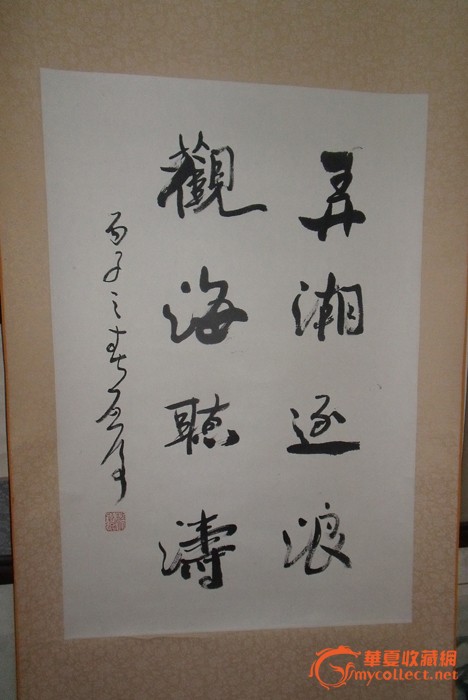 弄潮逐浪
觀海聽濤
丙子之春
華夏收藏網
mycollect.net